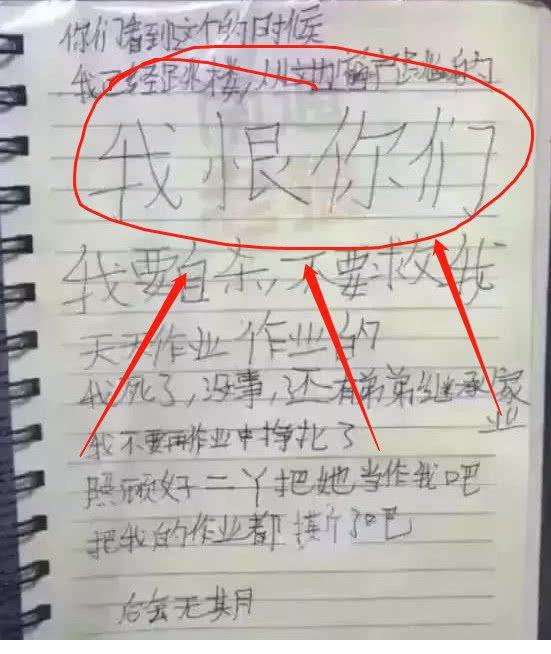 你们看到这个的时候
我已经跳楼,从
我恨你们
我要自杀,不要救我
天天作业作业的
我死了,没事,还有弟弟继承家业
我不要再作业中挣扎了
照顾好二丫把她当作我吧
把我的作业都撕了吧
后会无其月